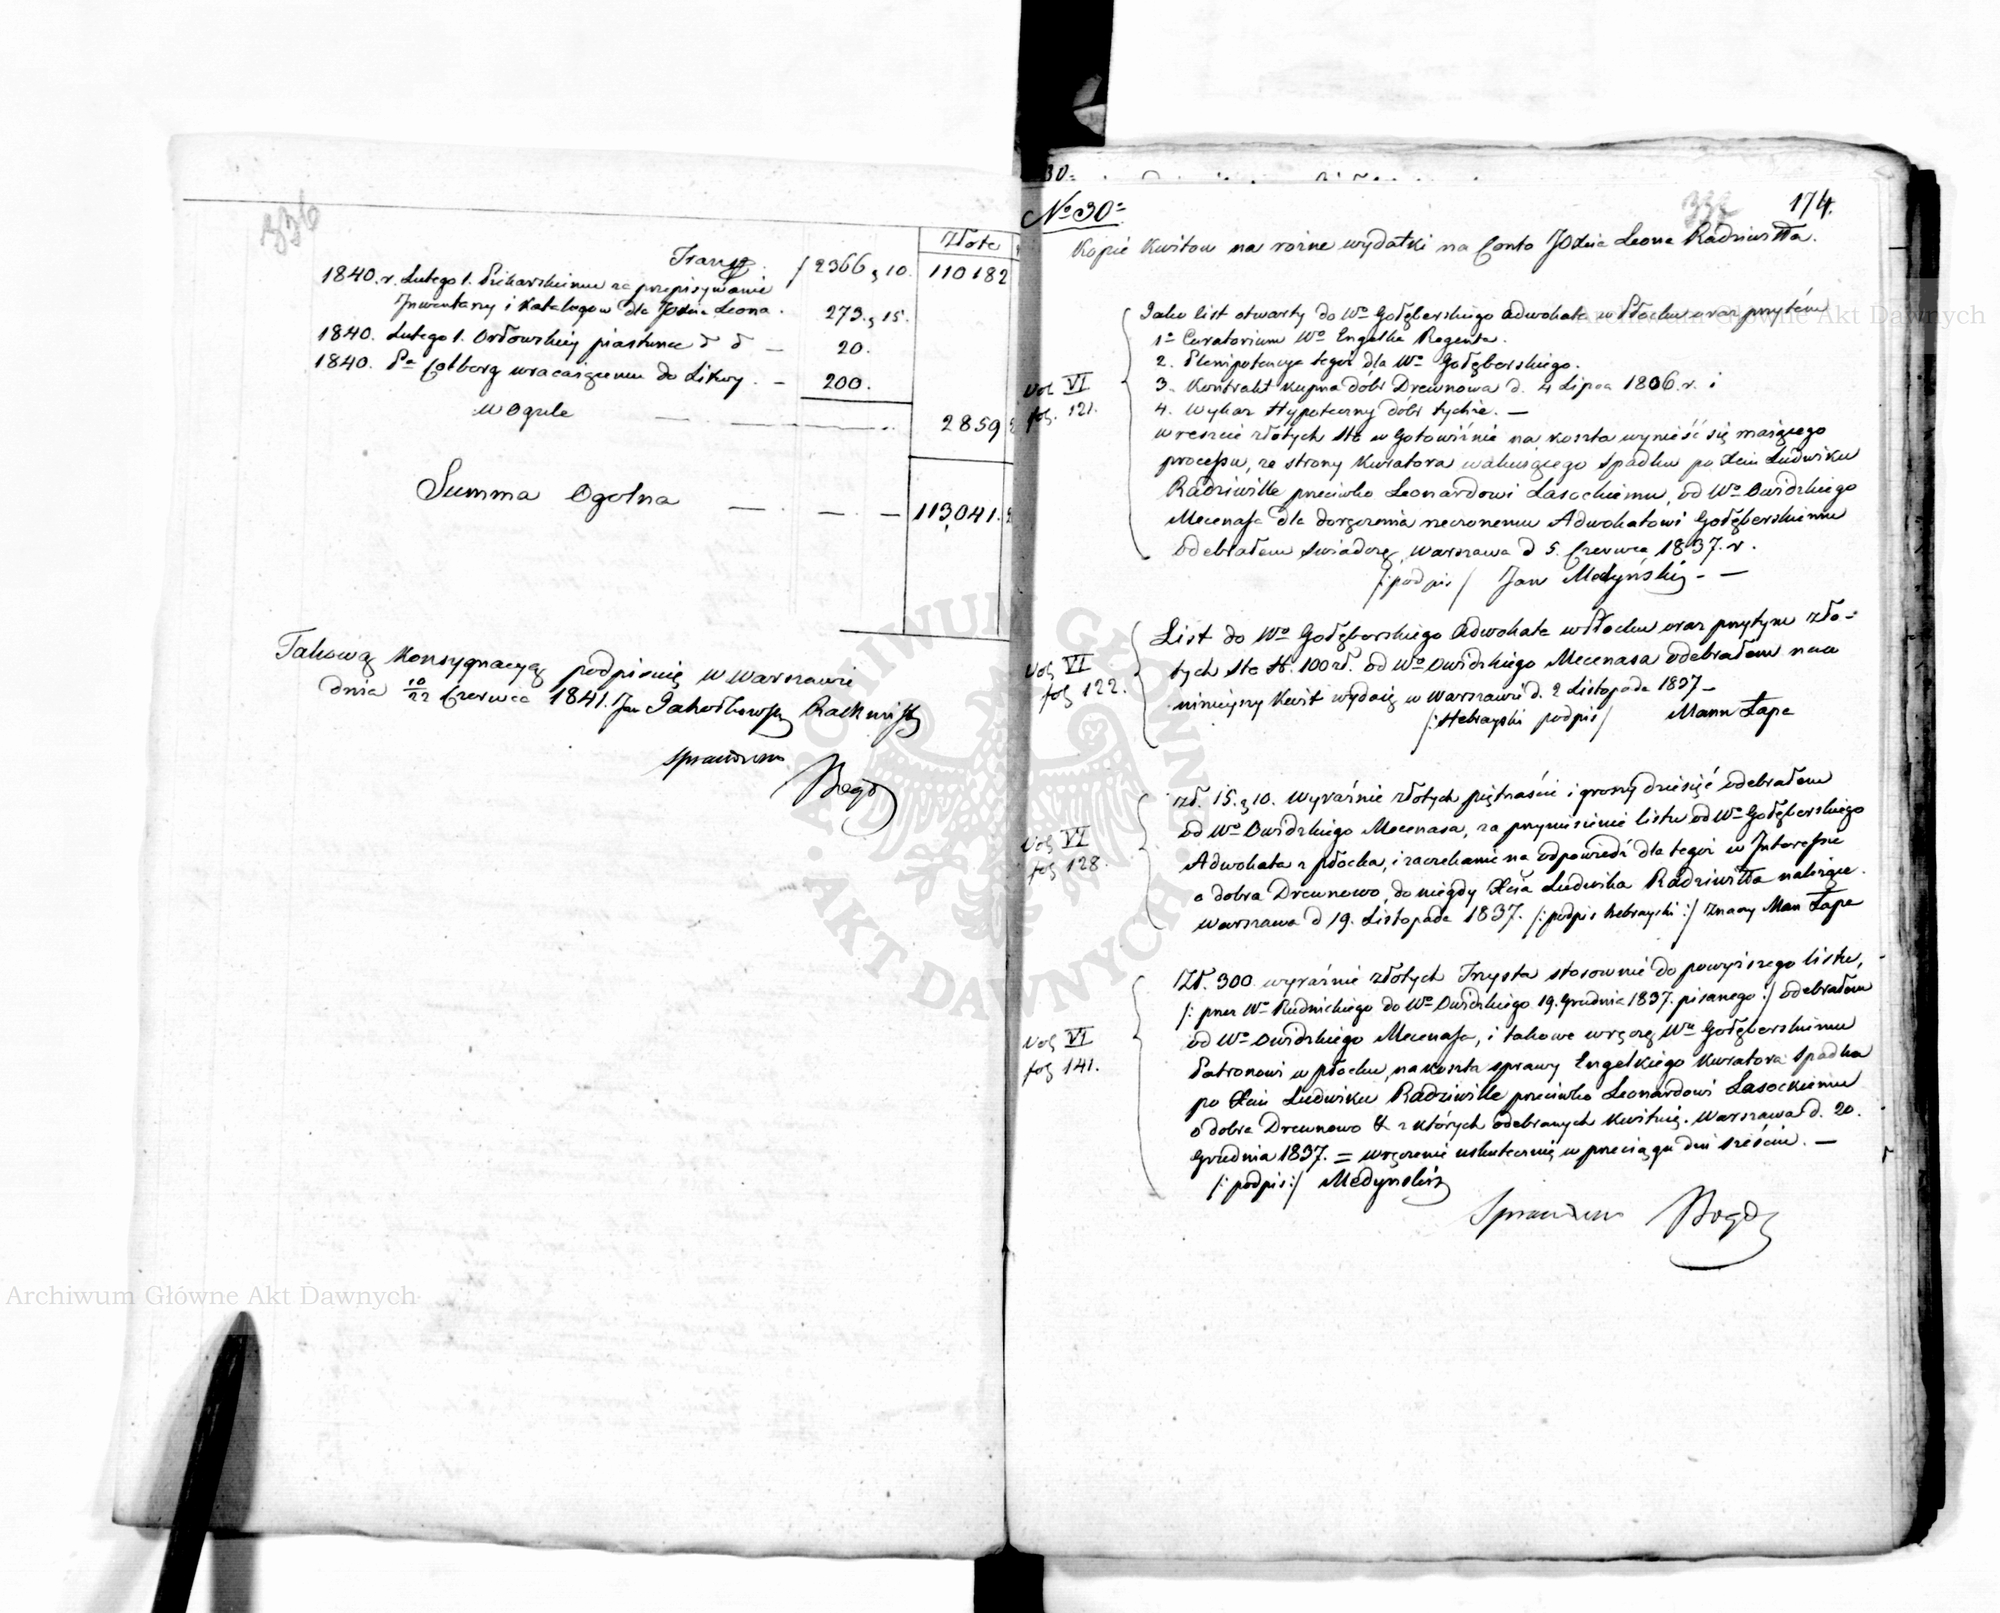 336
Złote
Transp. / 2366 g 10. 110182
1840. r. Lutego 1. Piekarskiemu za przepisywanie
Inwentarzy i Katalogów dla JOXcia Leona. 273. g 15.
1840. Lutego 1. Orłowskiey piastunce d d — 20.
1840. Pa Colberg wracaiącemu do Litwy. — 200.
W Ogule — — 2859
Summa Ogolna — — — 113,041.
Takową Konsygnacyą podpisuię w Warszawie
dnia 10/22 Czerwca 1841. Jan Jakubowski
Sprawdzono
30.
No 30o
174.
Kopie Kwitow na rożne wydatki na Conto JOXcia Leona Radziwiłła.
Jako list otwarty do Wo Gołęberskiego Adwokata w Płocku oraz przytém
1o Curatorium Wo Engelke Regenta.
2. Plenipotencya tegoż dla Wo Gołęberskiego.
3. Kontrakt kupna dóbr Drewnowa d. 4 Lipca 1806. r. i
4. Wykaz Hypoteczny dóbr tychże. —
Vol VI
fol. 121.
w reszcie złotych sto w Gotowiźnie na koszta wynieść się maiącego
processu, ze strony Kuratora wakuiącego Spadku po Xciu Ludwiku
Radziwille przeciwko Leonardowi Lasockiemu, od Wo Owidzkiego
Mecenasa dla doręczenia rzeczonemu Adwokatowi Gołęberskiemu
odebrałem świadczę, Warszawa d 5. Czerwca 1837. r.
/: podpis / Jan Medyński - —
List do Wo Gołęberskiego Adwokata w Płocku oraz przytym zło-
tych sto N. 100 zł. od Wo Owidzkiego Mecenasa odebrałem na co
Vol VI
fol 122.
ninieyszy Kwit wydaię w Warszawie d. 2 Listopada 1837 —
/: Hebrayski podpis / Mann Łapa
zł. 15. g 10. Wyraźnie złotych piętnaście i groszy dziesięć odebrałem
od Wo Owidzkiego Mecenasa, za przyniesienie listu od Wo Gołęberskiego
Vol VI
fol 128.
Adwokata z Płocka, i zaczekanie na odpowiedź dla tegoż w Interesie
o dobra Drewnowo, do niegdy Xcia Ludwika Radziwiłła należące.
Warszawa d 19. Listopada 1837. /: podpis hebrayski :/ Znaczy Man Łapa
Zł. 300. wyraźnie złotych Trzysta stosownie do powyższego listu,
/: przez Wo Rudnickiego do Wo Owidzkiego 19. Grudnia 1837. pisanego :/ odebrałem
Vol VI
fol 141.
od Wo Owidzkiego Mecenasa, i takowe wręczę Wu Gołęberskiemu
Patronowi w Płocku, na koszta sprawy Engelkiego Kuratora Spadku
po Xciu Ludwiku Radziwille przeciwko Leonardowi Lasockiemu
o dobra Drewnowo & z których odebranych kwituię. Warszawa d. 20.
Grudnia 1837. = wręczenie uskutecznię w przeciągu dni sześciu. —
/: podpis :/ Medyński
Sprawdzono
ARCHIWUM GŁÓWNE AKT DAWNYCH
Archiwum Główne Akt Dawnych
Archiwum Główne Akt Dawnych